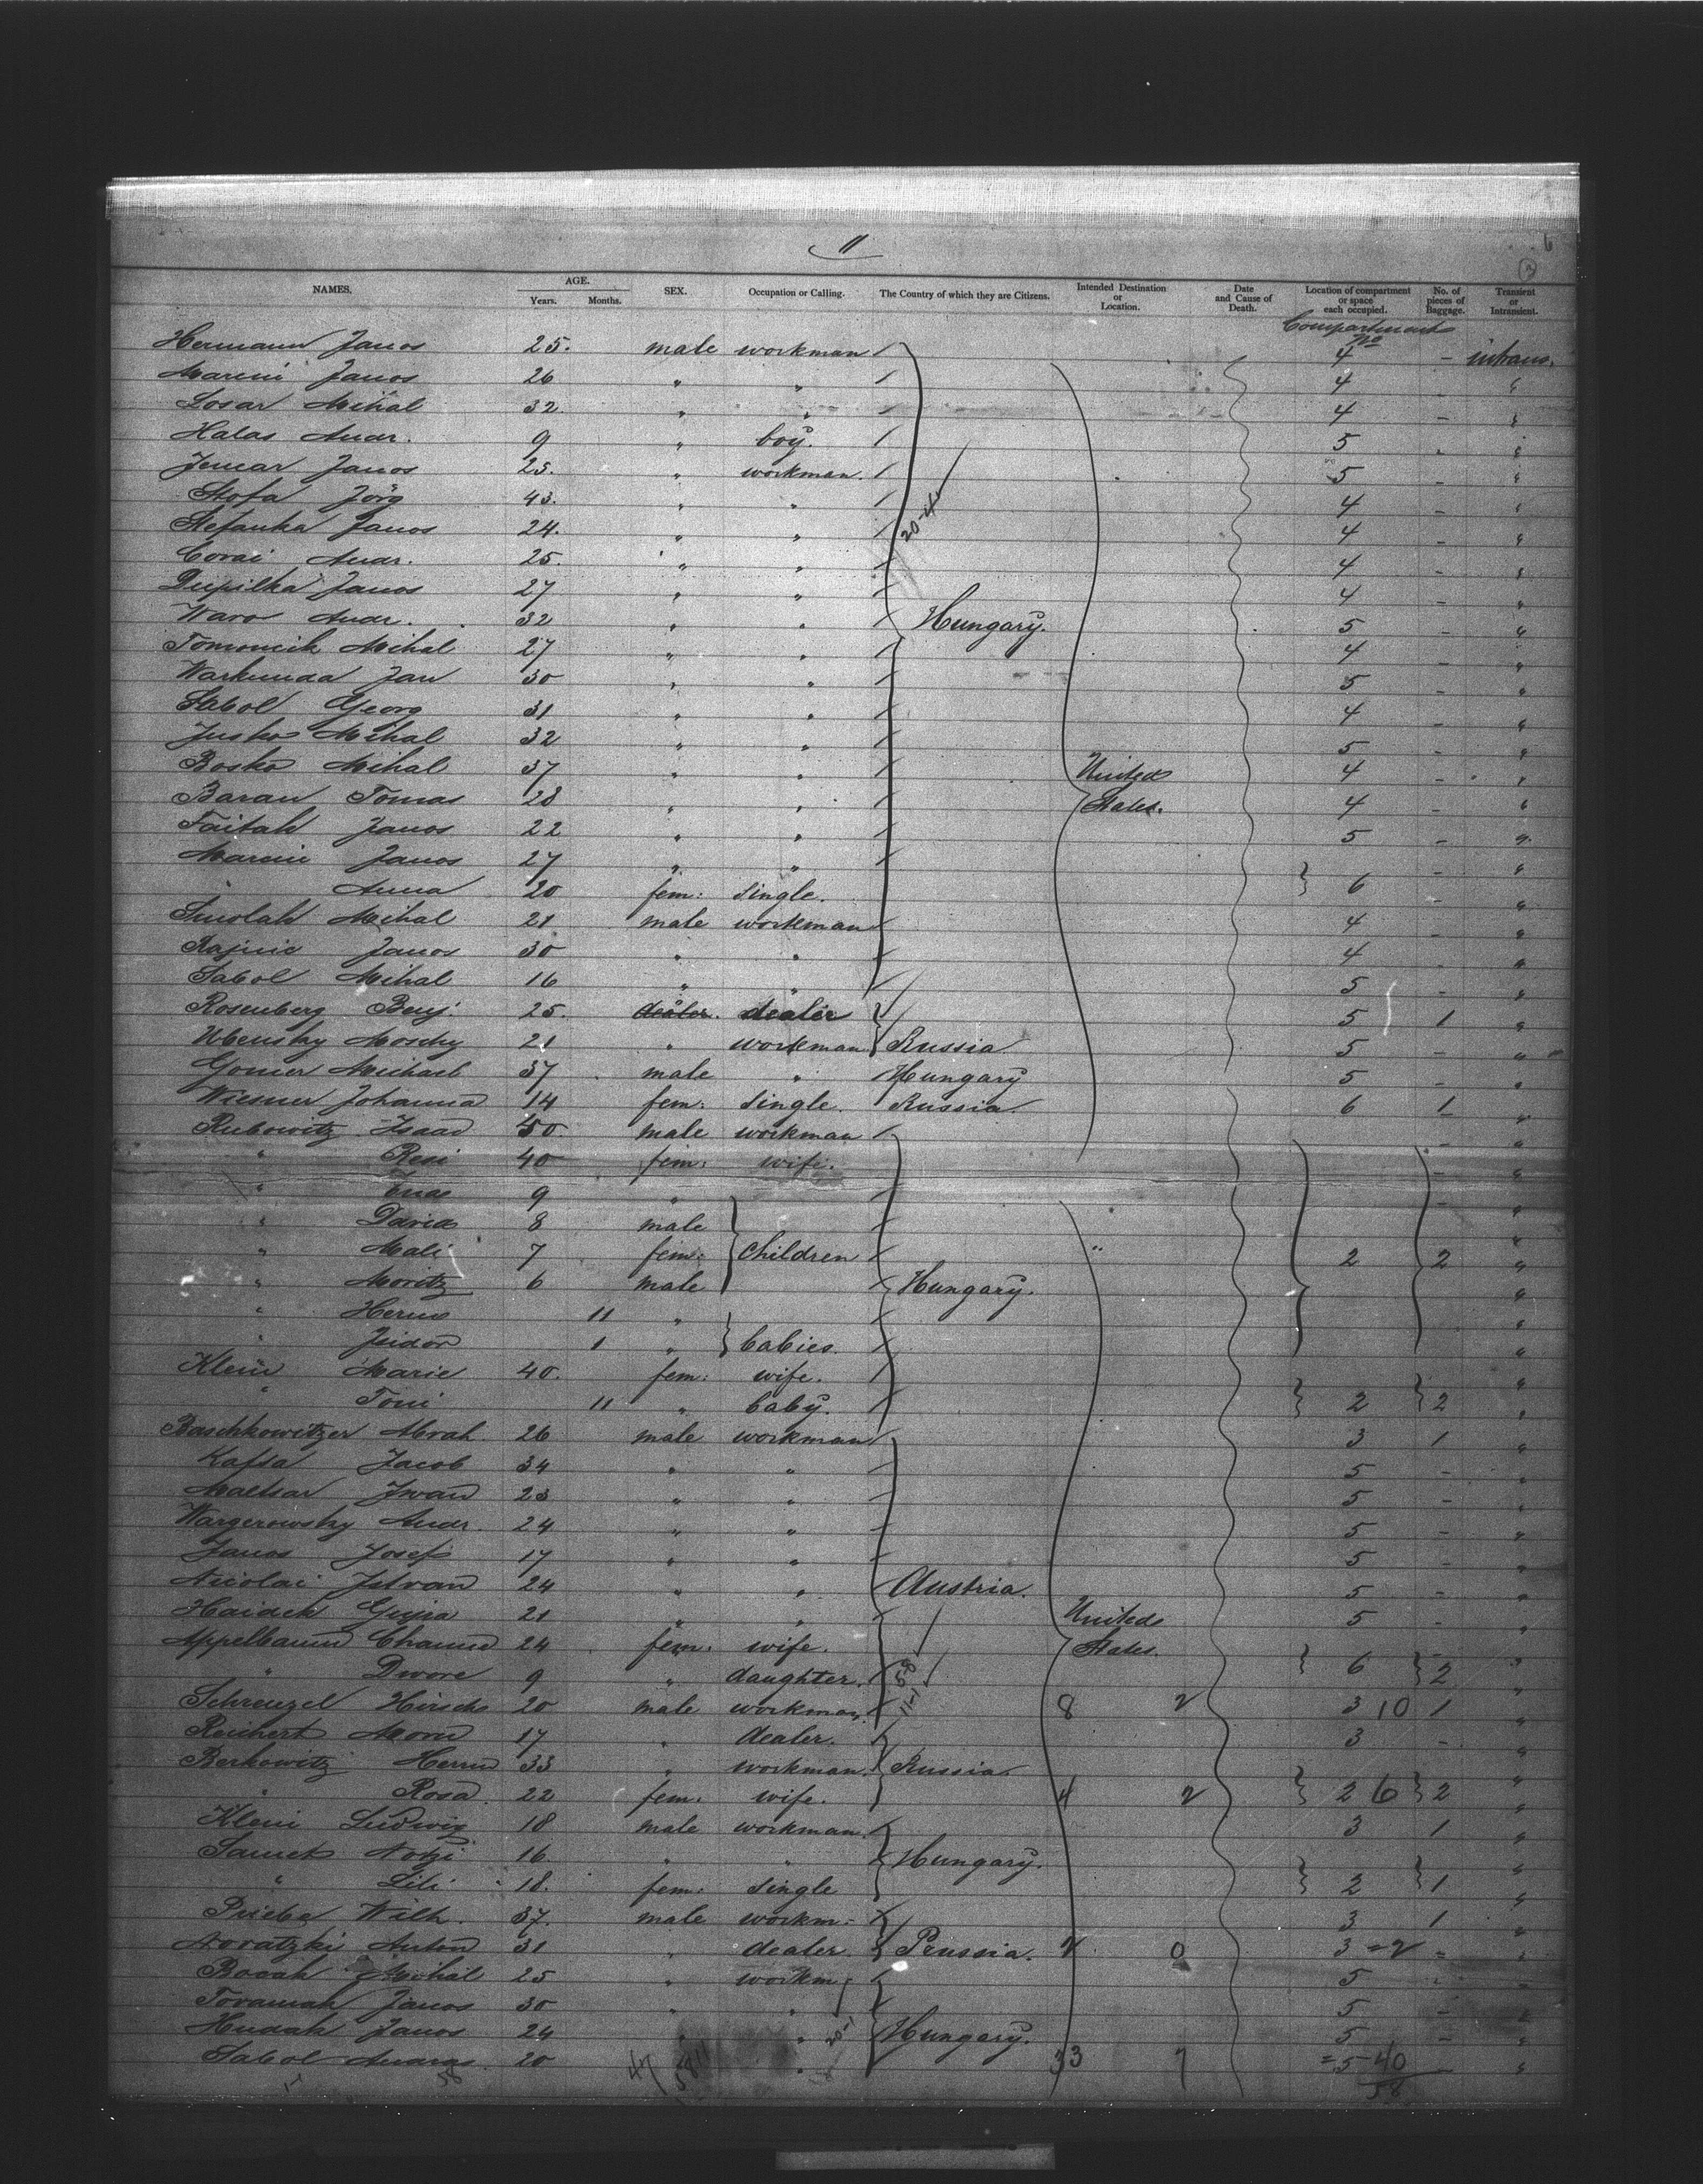 11
6
NAMES. AGE. Years. Months. SEX. Occupation or Calling. The Country of which they are Citizens. Intended Destination or Location. Date and Cause of Death. Location of compartment or space each occupied. No. of pieces of Baggage. Transient or Intransient.
Compartment No
Hermann Janos 25. male workman 4 - intrans.
Janos 26 " " 4 - "
Losar Mihal 32. " " 4 - "
Halas Andr. 9 " boy. 5 - "
Janos 25. " workman. 5 - "
Stofa Jörg 43. " " 4 - "
Stefanka Janos 24. " " 4 - "
Andr. 25. " " 4 - "
Janos 27 " " 4 - "
Waro Andr. 32 " " Hungary. 5 - "
Tomoncik Mihal 27 " " 4 - "
Warhunda Jan 30 " " 5 - "
Stabol Georg 31 " " 4 - "
Jusko Mihal 32 " " 5 - "
Bosko Mihal 37 " " United 4 - "
Baran Tomas 28 " " States. 4 - "
Faitak Janos 22 " " 5 - "
Janos 27 " " - "
" Anna 20 fem: single. 6 - "
Smolak Mihal 21 male workman 4 - "
Janos 30 " " 4 - "
Sabol Mihal 16 " " 5 - "
Rosenberg Benj. 25. dealer. dealer 5 1 "
Moschy 21 " workman Russia. 5 - "
Michael 37 male " Hungary 5 - "
Wiesner Johanna 14 fem: single. Russia. 6 1 "
Rubowitz Isaac 50. male workman - "
" Resi 40 fem: wife. - "
" 9 " - "
" David 8 male "
" Mali 7 fem: children " 2 2 "
" Moritz 6 male Hungary. "
" Herm 11 " "
" Isidor 1 " babies. "
Klein Marie 40. fem: wife. "
" Toni 11 " baby. 2 2 "
Baschkowitzer Abrah 26 male workman 3 1 "
Kafsa Jacob 34 " " 5 - "
Iwan 23 " " 5 - "
Wargerowsky Andr. 24 " " 5 - "
Janos Josef 17 " " 5 - "
Nicolai Istvan 24 " " Austria. 5 - "
Haidek 21 " " United 5 - "
Appelbaum 24 fem. wife. States. "
" Dwore 9 " daughter. 6 2 "
Hirsch 20 male workman. 8 2 3 10 1 "
Reichert 17 " dealer. 3 - "
Berkowitz Herm 33 " workman. Russia. "
" Rosa 22 fem. wife. 4 2 2 6 2 "
Klein Ludwig 18 male workman. 3 1 "
16. " " Hungary. "
" Lili 18. fem: single 2 1 "
Wilh. 37. male workm. 3 1 "
Novatzki Anton 31 " dealer Prussia. 2 0 3 = 2 - "
Mihal 25 " workm. 5 - "
Janos 30 " " 5 - "
Hudak Janos 24 " " Hungary. 5 - "
Sabol 20 " 33 7 5 40 - "
58